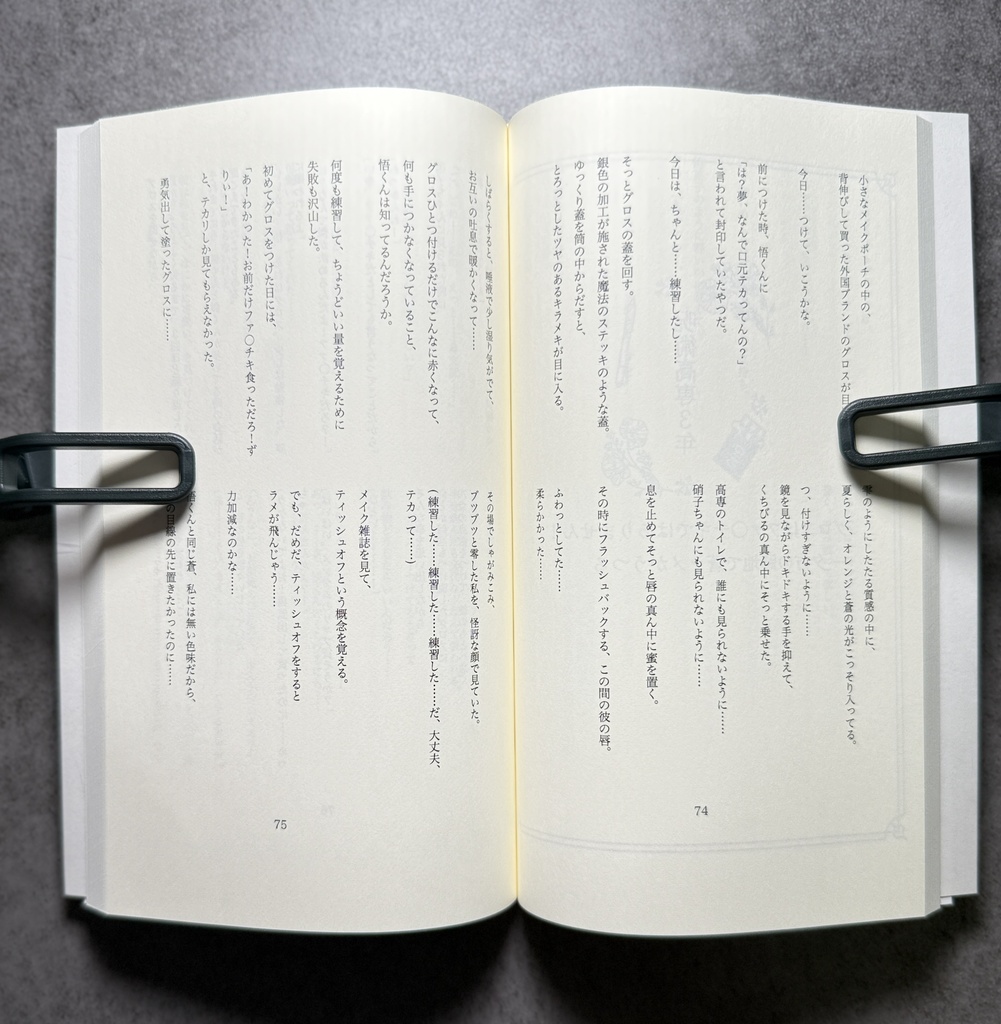 小さなメイクポーチの中の、
背伸びして買った外国ブランドのグロスが目
今日……つけて、いこうかな。
前につけた時、悟くんに
「は?夢、なんで口元テカってんの?」
と言われて封印していたやつだ。
今日は、ちゃんと……練習したし……
そっとグロスの蓋を回す。
銀色の加工が施された魔法のステッキのような蓋。
ゆっくり蓋を筒の中からだすと、
とろっとしたツヤのあるキラメキが目に入る。
雫のようにしたたる質感の中に、
夏らしく、オレンジと蒼の光がこっそり入ってる。
つ、付けすぎないように……
鏡を見ながらドキドキする手を抑えて、
くちびるの真ん中にそっと乗せた。
高専のトイレで、誰にも見られないように……
硝子ちゃんにも見られないように……
息を止めてそっと唇の真ん中に蜜を置く。
その時にフラッシュバックする、この間の彼の唇。
ふわっとしてた……
柔らかかった……
74
しばらくすると、唾液で少し湿り気がでて、
お互いの吐息で暖かくなって……
グロスひとつ付けるだけでこんなに赤くなって、
何も手につかなくなっていること、
悟くんは知ってるんだろうか。
何度も練習して、ちょうどいい量を覚えるために
失敗も沢山した。
初めてグロスをつけた日には、
「あ!わかった!お前だけファ〇チキ食っただろ!ず
りぃ!」
と、テカリしか見てもらえなかった。
勇気出して塗ったグロスに……
その場でしゃがみこみ、
ブツブツと零した私を、怪訝な顔で見ていた。
(練習した……練習した……練習した……だ、大丈夫、
テカって……)
メイク雑誌を見て、
ティッシュオフという概念を覚える。
でも、だめだ、ティッシュオフをすると
ラメが飛んじゃう……
力加減なのかな……
悟くんと同じ蒼、私には無い色味だから、
の目線の先に置きたかったのに……
75